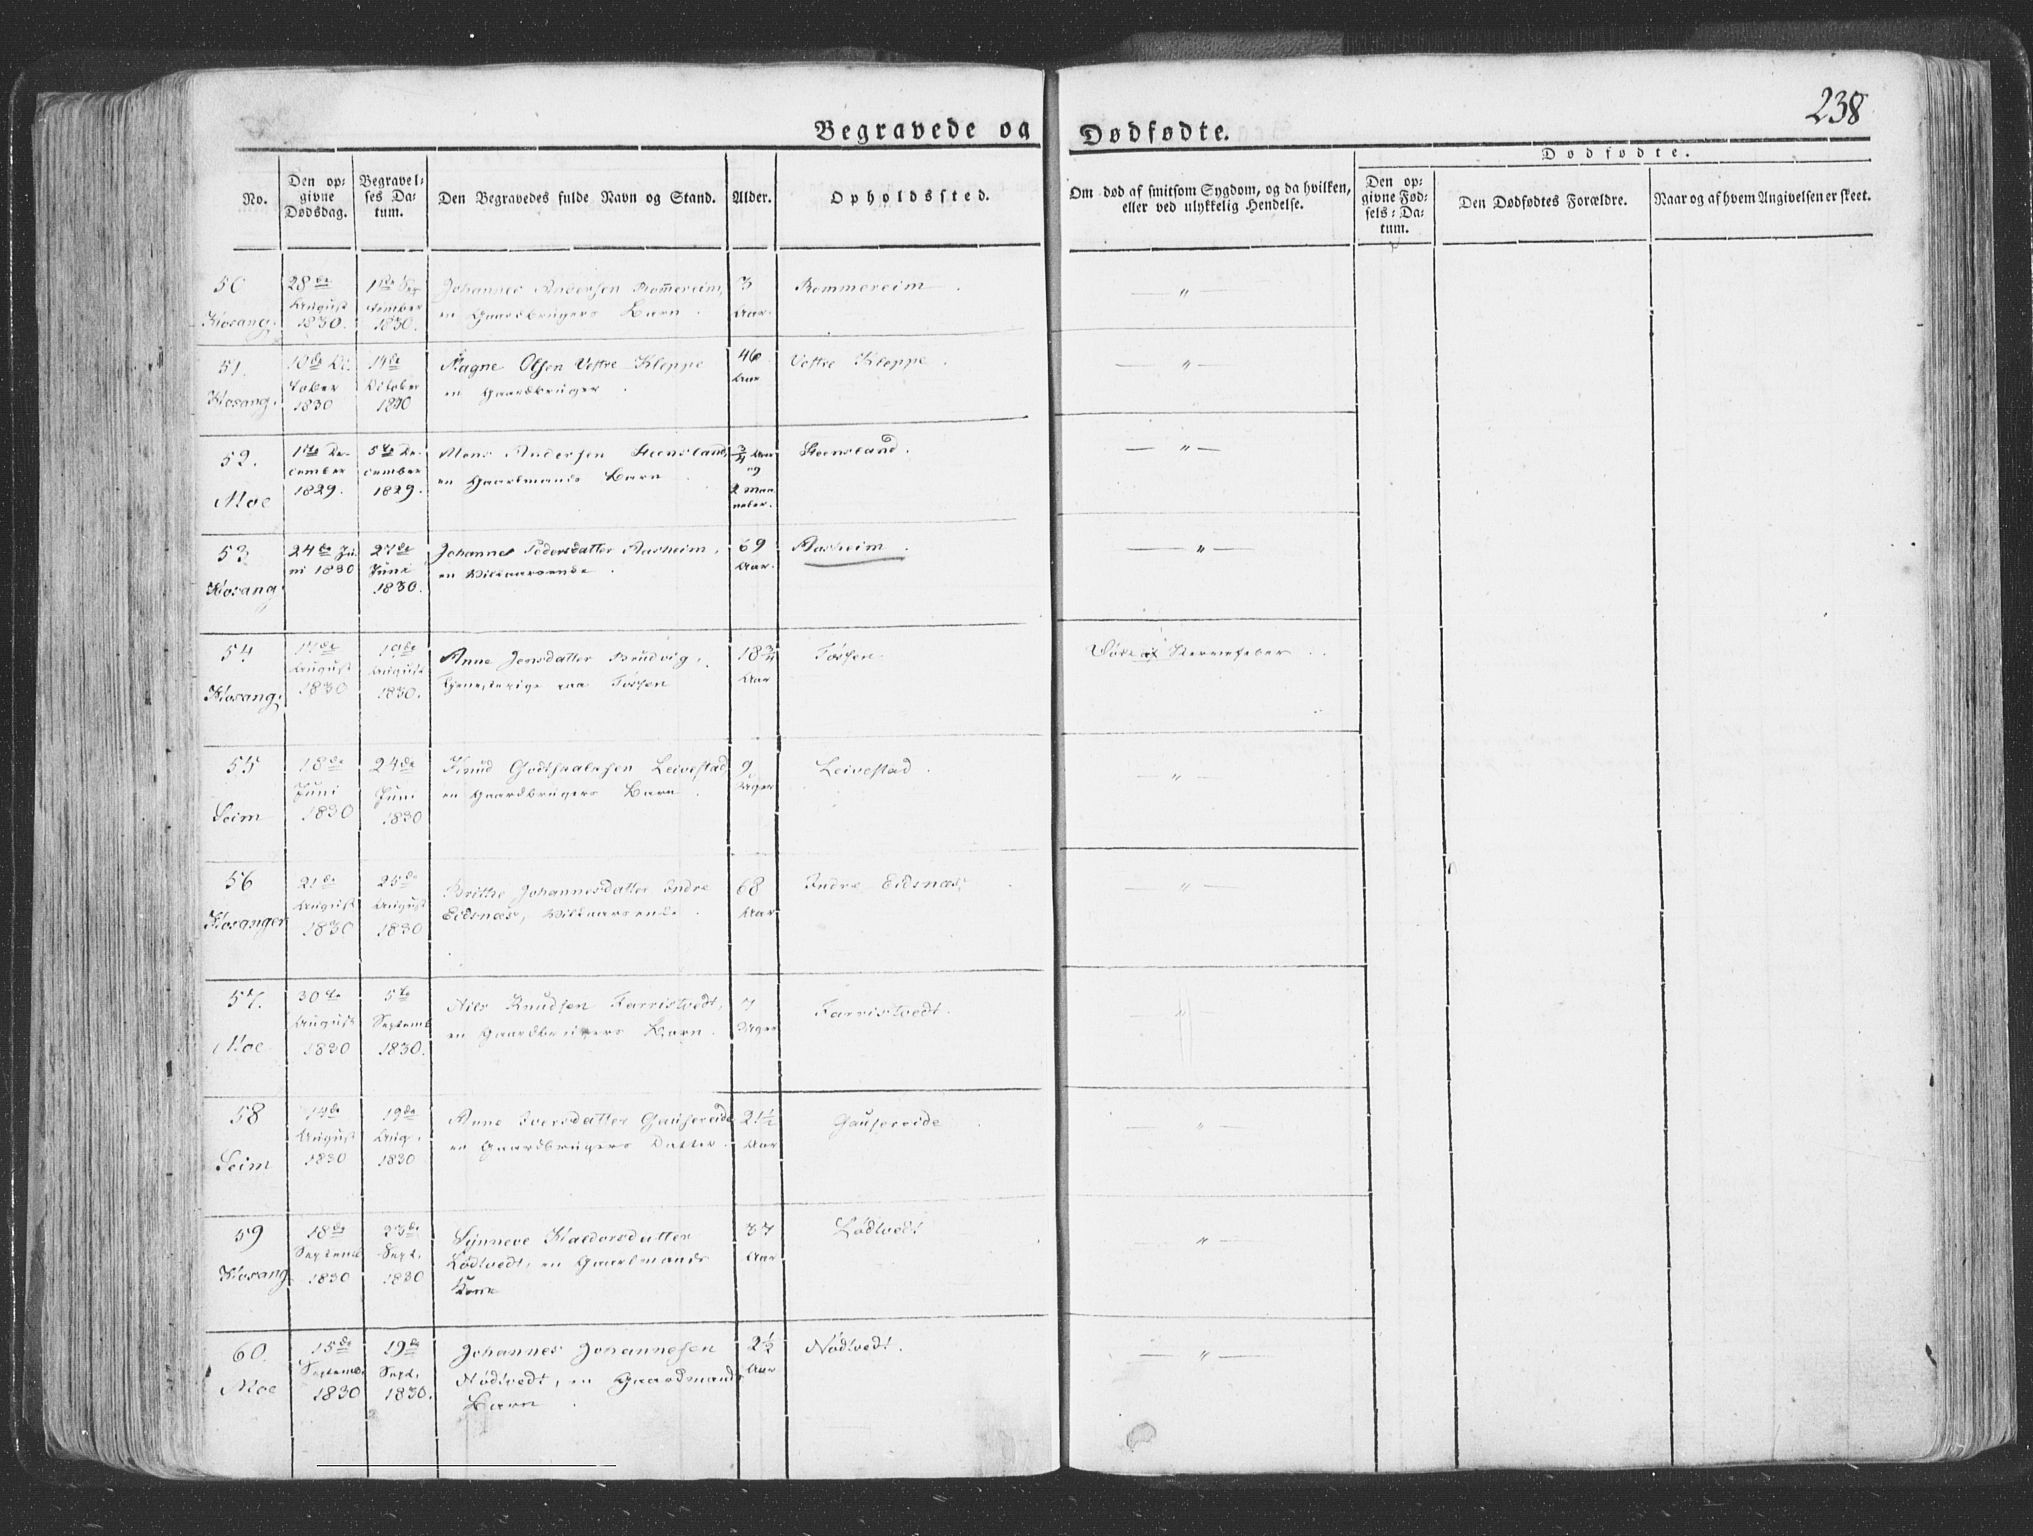 238
Begravede og Dødfødte.
Dødfødte.
No.
Den op=
givne
Dødsdag.
Begravel=
ses Da=
tum.
Den Begravedes fulde Navn og Stand.
Alder.
Opholdssted.
Om død af smitsom Sygdom, og da hvilken,
eller ved ulykkelig Hendelse.
Den op=
givne Fød=
sels=Da=
tum.
Den Dødfødtes Forældre.
Naar og af hvem Angivelsen er skeet.
50
Hosang.
28de
August
1830.
1ste Sep
tember
1830.
Johannes Andersen Rommereim,
en Gaardbrugers Barn.
3
Aar.
Rommereim.
— " —
51.
Hosang.
10de Oc
tober
1830
14de
October
1830
Magne Olsen Vestre Kleppe
en Gaardbruger.
46
Aar
Vestre Kleppe.
— " —
52.
Moe
1ste De-
cember
1829.
5te De-
cember
1829.
Mons Andersen
en Gaardmands Barn.
3/4 Aar
og
2 Maa
neder.
— " —
53.
Hosang
24de Ju
ni 1830
27de
Juni
1830.
Johanne Pedersdatter Aasheim,
en Vilkaarsende.
69
Aar.
Aasheim.
— " —
54
Hosang.
August
1830
19de
August
1830.
Anne Jensdatter Brudvig,
Tjenestepige paa Fossen
18 3/4
Aar
Fossen.
Døde af Nervefeber.
55
Seim
18de
Juni
1830
24de
Juni
1830
Knud Godskalksen Leivestad,
en Gaardbrugers Barn.
9
Dager
Leivestad.
— " —
56
Hosanger
21de
August
1830
25de
August
1830
Brithe Johannesdatter Indre
Eidsnæs, Vilkaarsende.
68
Aar
Indre Eidsnæs,
— " —
57.
Moe
30te
August
1830
5te
Septemb
1830.
Nils Knudsen Farristvedt,
en Gaardbrugers Barn.
7
Dager
Farristvedt.
— " —
58
Seim
14de
August
1830
19de
Aug.
1830
Anne Iversdatter Gausereide
en Gaardbrugers Datter.
21 1/2
Aar
Gausereide
— " —
59
Hosang
18de
Septemb
1830
23de
Sept.
1830
Synneve Haldorsdatter
Lødtvedt, en Gaardmands
Kone
37
Aar
Lødtvedt
— " —
60.
Moe
15de
Septemb
1830
19de
Sept.
1830.
Johannes Johannesen
Nødtvedt, en Gaardmands
Barn.
2 1/2
Aar
Nødtvedt.
— " —